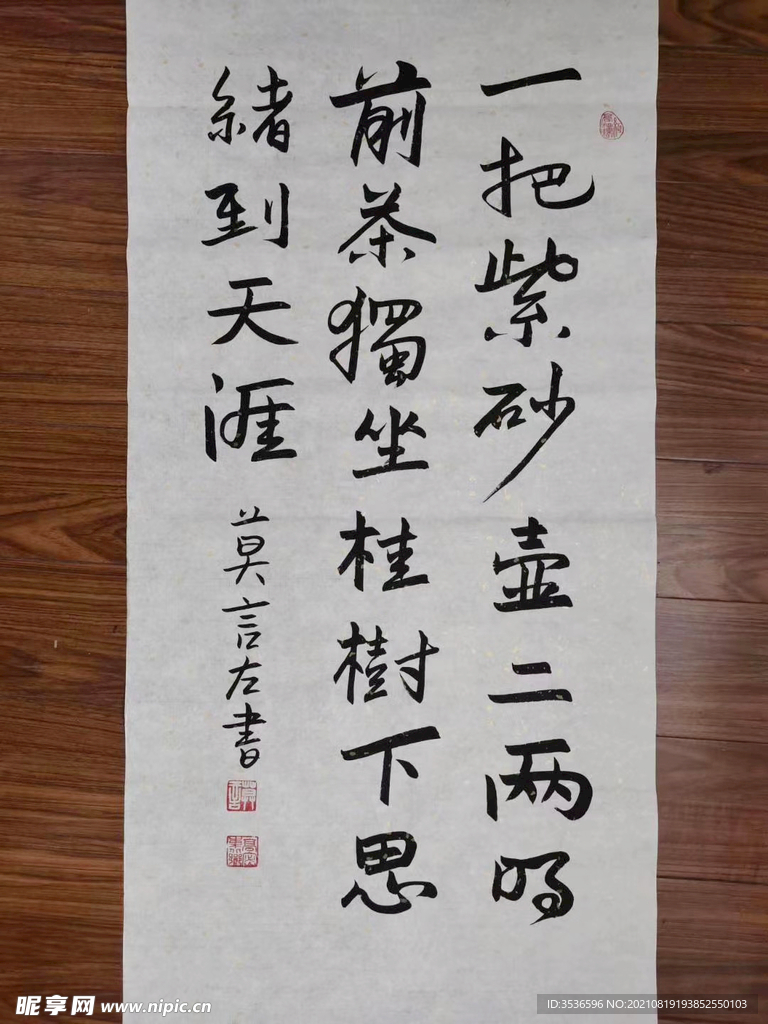 一把紫砂壶二两明
前茶獨坐桂樹下思
緒到天涯
莫言左書
莫言
昵享网 www.nipic.cn
ID:3536596 NO:20210819193852550103